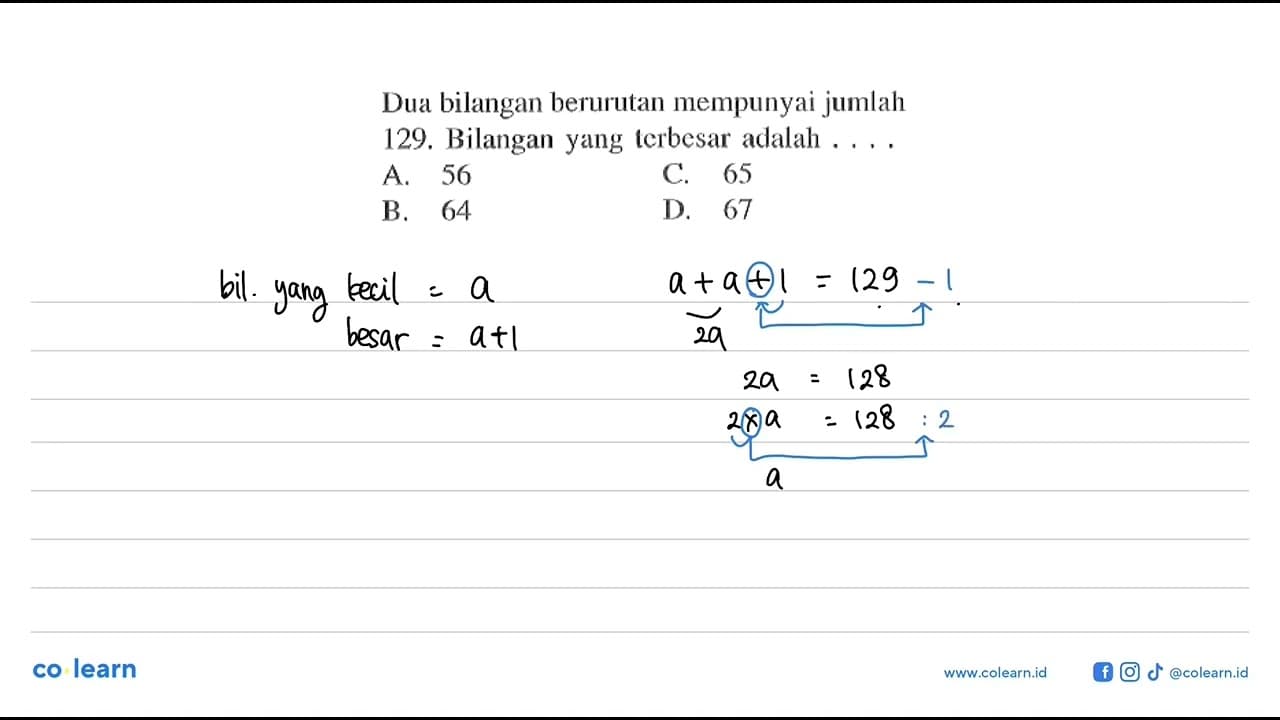 Dua bilangan berurutan mempunyai jumlah
129. Bilangan yang terbesar adalah . . . .
A. 56 C. 65
B. 64 D. 67
bil. yang kecil = a
besar = a+1
a + a + 1 = 129 - 1
2a
2a = 128
2 x a = 128 : 2
a
co learn
www.colearn.id @colearn.id